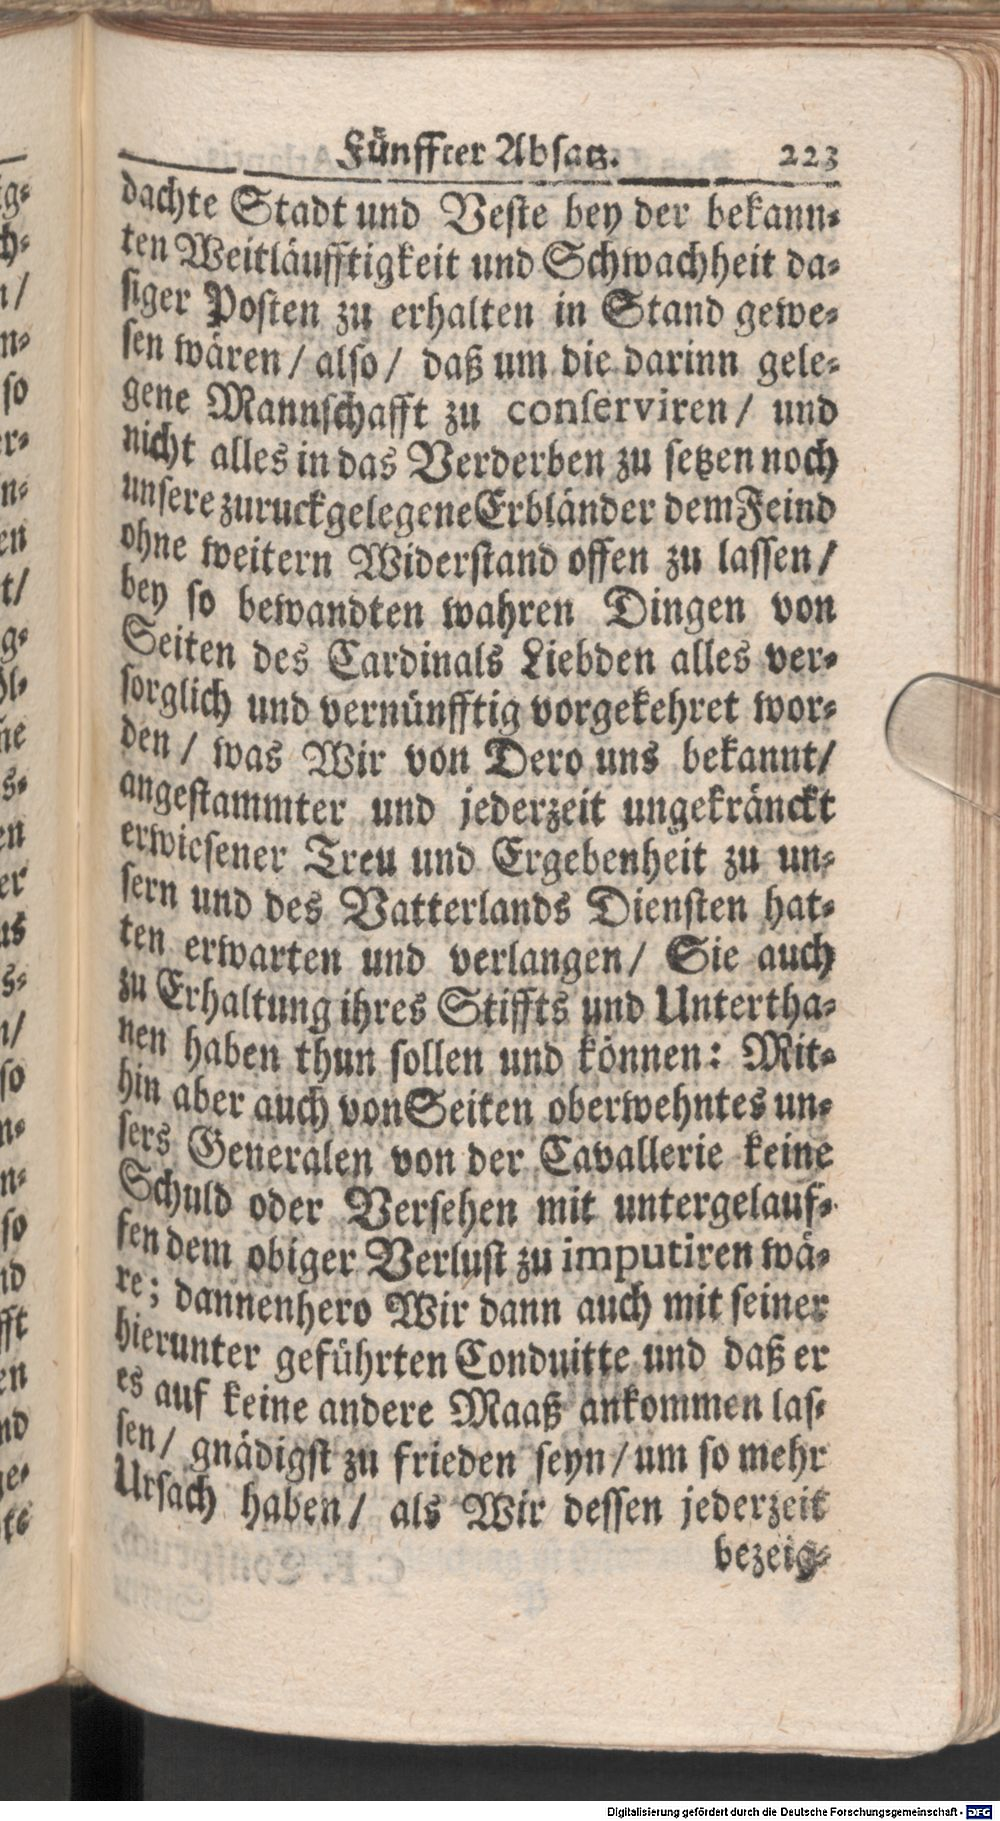 Fünffter Absatz. 223
dachte Stadt und Veste bey der bekann-
ten Weitläufftigkeit und Schwachheit da-
siger Posten zu erhalten in Stand gewe-
sen wären / also / daß um die darinn gele-
gene Mannschafft zu conserviren / und
nicht alles in das Verderben zu setzen noch
unsere zuruckgelegene Erbländer dem Feind
ohne weitern Widerstand offen zu lassen /
bey so bewandten wahren Dingen von
Seiten des Cardinals Liebden alles ver-
sorglich und vernünfftig vorgekehret wor-
den / was Wir von Dero uns bekannt /
angestammter und jederzeit ungekränckt
erwiesener Treu und Ergebenheit zu un-
sern und des Vatterlands Diensten hat-
ten erwarten und verlangen / Sie auch
zu Erhaltung ihres Stiffts und Untertha-
nen haben thun sollen und können: Mit-
hin aber auch von Seiten oberwehntes un-
sers Generalen von der Cavallerie keine
Schuld oder Versehen mit untergelauf-
fen dem obiger Verlust zu imputiren wä-
re; dannenhero Wir dann auch mit seiner
hierunter geführten Conduitte und daß er
es auf keine andere Maaß ankommen las-
sen / gnädigst zu frieden seyn / um so mehr
Ursach haben / als Wir dessen jederzeit
bezeig-
Digitalisierung gefördert durch die Deutsche Forschungsgemeinschaft - DFG